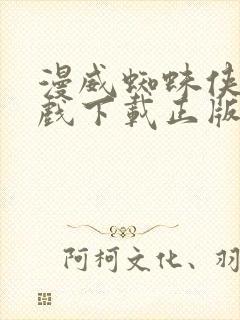 漫威蜘蛛侠
戏下载正版
阿柯文化、羽